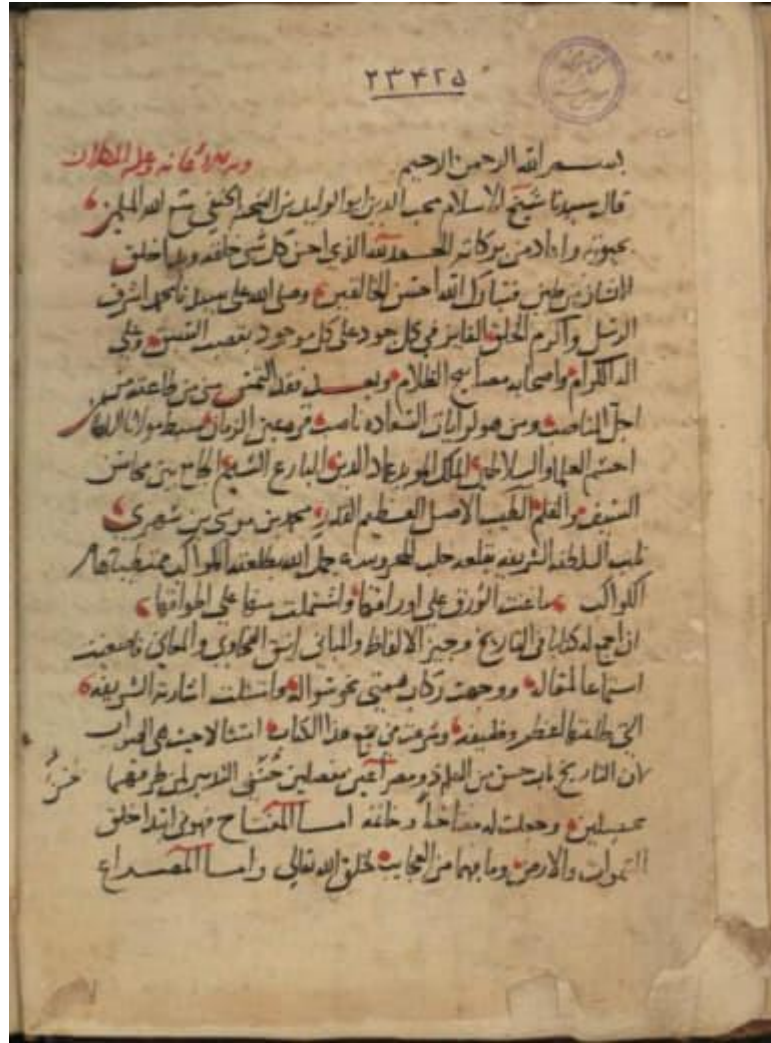 ٢٣٤٢٥
بسم الله الرحمن الرحيم
قال سيدنا شيخ الاسلام محب الدين ابو الوليد بن الشحنه الحنفي متع الله المسلمين
بحيوته واعاد من بركاته الحمد لله الذي احسن كل شي خلقه وبدا خلق
الانسان من طين فتبارك الله احسن الخالقين وصلى الله على سيدنا محمد اشرف
الرسل واكرم الخلق الفايز في كل جود على كل موجود بقصب السبق وعلى
اله الكرام واصحابه مصابيح الظلام وبعد فقد التمس مني من طاعته من
اجل المناصب ومن هو لرايات السعاده ناصب قرة عين الزمان
العلما والسلاطين الملك المويد عماد الدين البارع الجامع بين محاسن
السيف والقلم الاصل العظيم القدر محمد بن موسى بن شهري
السلطنه الشريفه بقلعه حلب المحروسه جمل الله بطلعته المواكب
الكواكب ما غنت الورق على اوراقها واشتملت على اطواقها
ان اجمع له كتابا في التاريخ وجيز الالفاظ والمباني الفحاوي والمعاني
استماعا لمقاله ووجهت ركاب همتي نحو سواله وامتثلت اشارته الشريفه
التي وظيفه وشرعت في جمع هذا الكتاب امتثالا
لان التاريخ
وجعلت له مفتاحا وخاتمه اما المفتاح فهو في ابتدا خلق
السموات والارض وما فيهما من العجايب لخلق الله تعالى واما المصراع